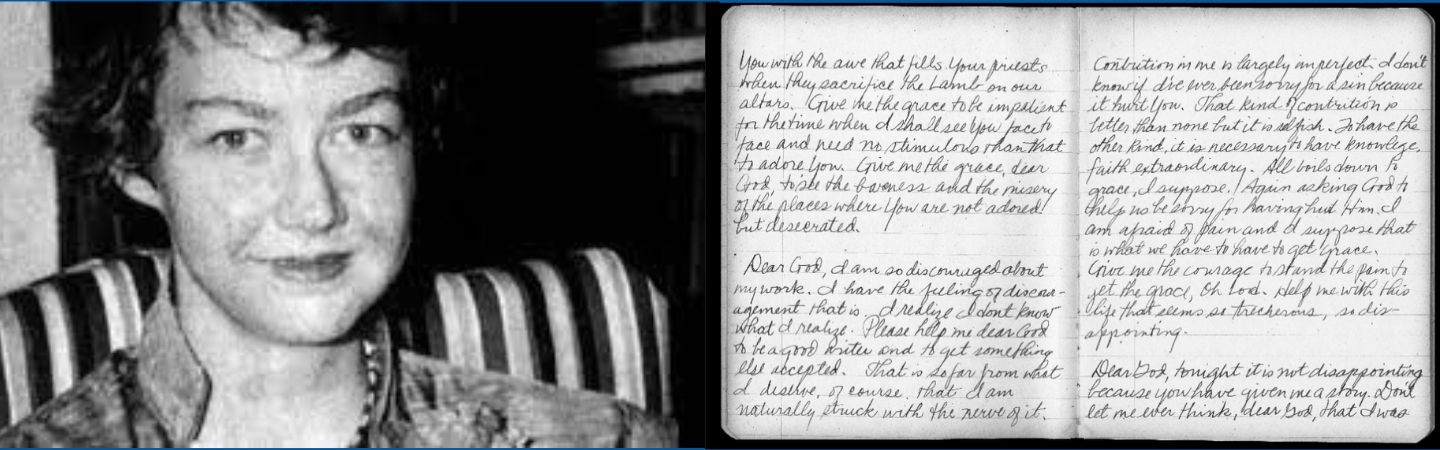 You with the awe that fills Your priests
when they sacrifice the Lamb on our
altars. Give me the grace to be impatient
for the time when I shall see You face to
face and need no stimulous than that
to adore You. Give me the grace, dear
God, to see the bareness and the misery
of the places where You are not adored
but desecrated.
Dear God, I am so discouraged about
my work. I have the feeling of discour-
agement that is. I realize I dont know
what I realize. Please help me dear God
to be a good writer and to get something
else accepted. That is so far from what
I deserve, of course, that I am
naturally struck with the nerve of it.
Contrition in me is largely imperfect. I don't
know if I've ever been sorry for a sin because
it hurt You. That kind of contrition is
better than none but it is selfish. To have the
other kind, it is necessary to have knowlege,
faith extraordinary. All boils down to
grace, I suppose. Again asking God to
help us be sorry for having hurt Him. I
am afraid of pain and I suppose that
is what we have to have to get grace.
Give me the courage to stand the pain to
get the grace, Oh Lord. Help me with this
life that seems so trecherous, so dis-
appointing.
Dear God, tonight it is not disappointing
because you have given me a story. Dont
let me ever think, dear God, that I was